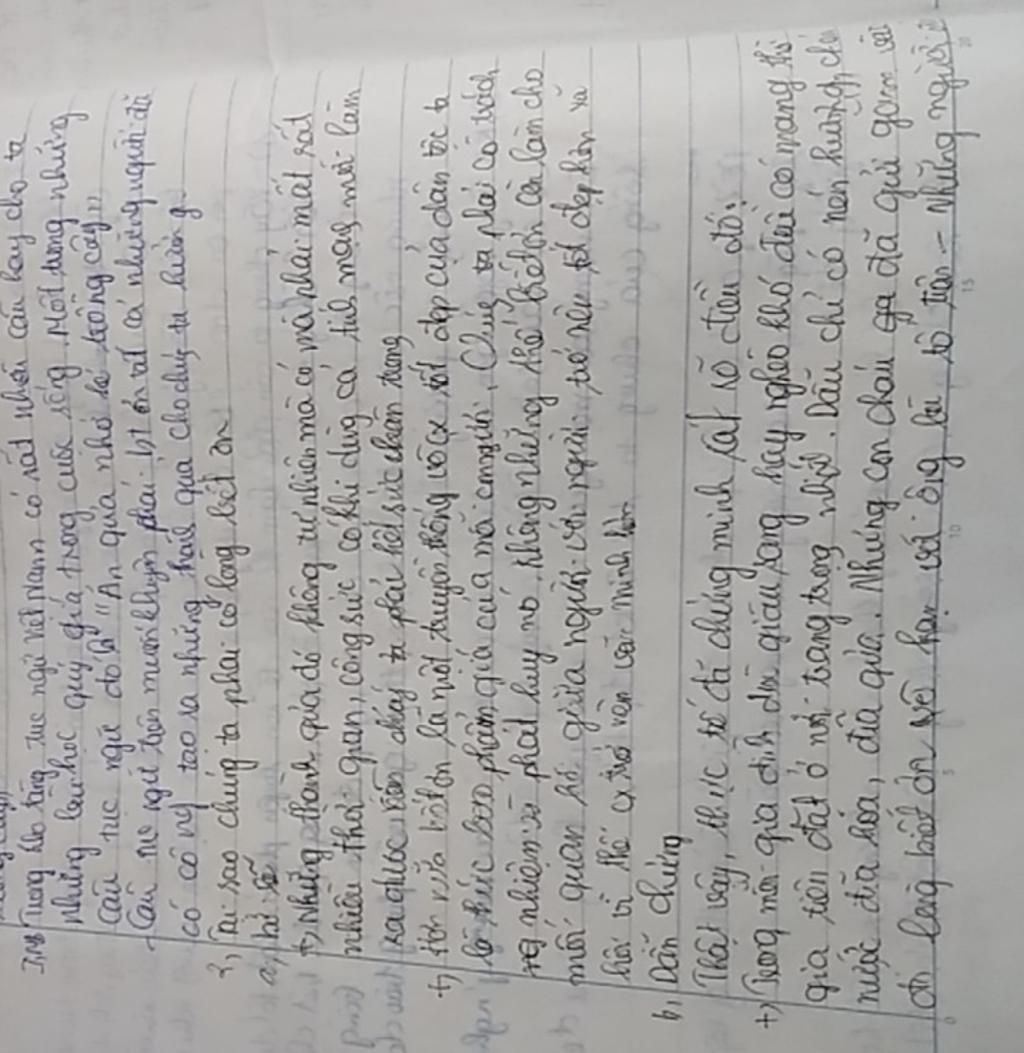 Trong kho tàng tục ngữ Việt Nam có rất nhiều câu hay cho ta
những bài học quý giá trong cuộc sống. Một trong những
câu tục ngữ đó là "Ăn quả nhớ kẻ trồng cây"
- Câu tục ngữ trên muốn khuyên phải biết ơn tất cả những người đã
có công tạo ra những thành quả cho chúng ta hưởng
2, Tại sao chúng ta phải có lòng biết ơn
a,
+) Những thành quả đó không tự nhiên mà có mà phải mất rất
nhiều thời gian, công sức có khi dùng cả tính mạng mới làm
ra được nên chúng ta phải hết sức trân trọng
+) Hơn nữa biết ơn là một truyền thống vô cx tốt đẹp của dân tộc ta
là thước đo phẩm giá của mỗi con người. Chúng ta phải có trách
nhiệm phát huy nó. không những thế biết ơn còn làm cho
mối quan hệ giữa người với người trở nên tốt đẹp hơn và
xã hội vì thế cx trở nên văn minh hơn
b, Dẫn chứng
Thật vậy, thực tế đã chứng minh rất rõ điều đó:
+) Trong mỗi gia đình dù giàu sang hay nghèo khó đều có mang thờ
gia tiên đặt ở nơi trang trọng nhất. Dẫu chỉ có nén hương, chén
nước đĩa hoa, đĩa quả. Những con cháu đã gửi gắm
lòng biết ơn vô hạn với ông bà tổ tiên - Những người